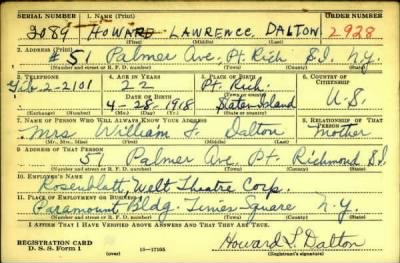 SERIAL NUMBER 1. NAME (Print) ORDER NUMBER
2089 HOWARD LAWRENCE DALTON 2928
(First) (Middle) (Last)
2. ADDRESS (Print)
# 51 Palmer Ave. Pt. Rich S.I. N.Y.
(Number and street or R. F. D. number) (Town) (County) (State)
3. TELEPHONE 4. AGE IN YEARS 5. PLACE OF BIRTH 6. COUNTRY OF CITIZENSHIP
Gib. 2-2101 22 Pt. Rich.
DATE OF BIRTH (Town or county)
4-28-1918 Staten Island U.S.
(Exchange) (Number) (Mo.) (Day) (Yr.) (State or country)
7. NAME OF PERSON WHO WILL ALWAYS KNOW YOUR ADDRESS 8. RELATIONSHIP OF THAT PERSON
Mrs. William J. Dalton Mother
(Mr., Mrs., Miss) (First) (Middle) (Last)
9. ADDRESS OF THAT PERSON
51 Palmer Ave. Pt. Richmond S.I.
(Number and street or R. F. D. number) (Town) (County) (State)
10. EMPLOYER'S NAME
Rosenblatt, Welt Theatre Corp.
11. PLACE OF EMPLOYMENT OR BUSINESS
Paramount Bldg. Times Square N.Y.
(Number and street or R. F. D. number) (Town) (County) (State)
I AFFIRM THAT I HAVE VERIFIED ABOVE ANSWERS AND THAT THEY ARE TRUE.
REGISTRATION CARD
D. S. S. Form 1 (over) 16—17105 Howard L. Dalton
(Registrant's signature)